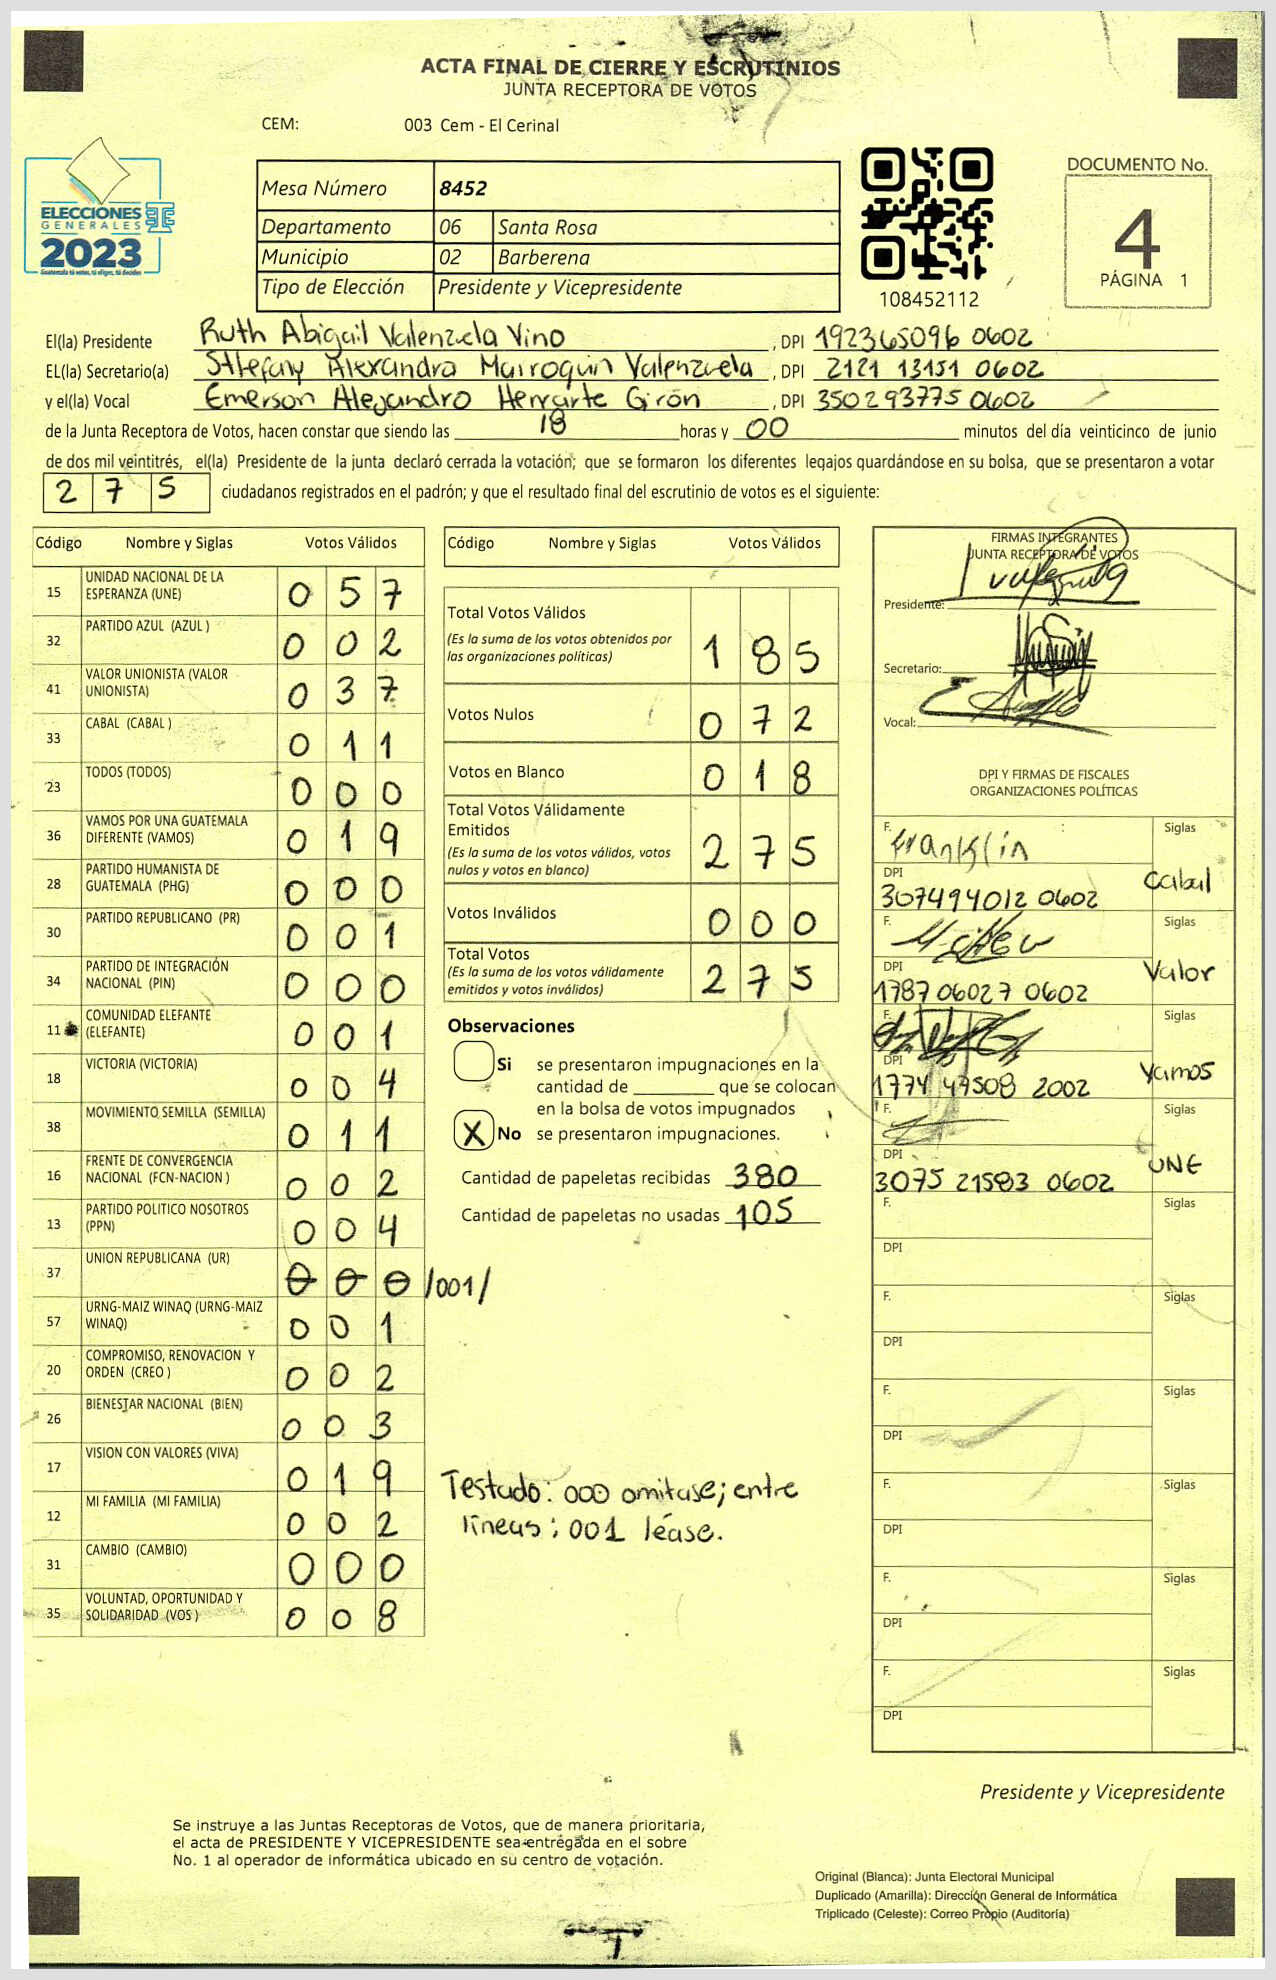 ACTA FINAL DE CIERRE Y ESCRUTINIOS
JUNTA RECEPTORA DE VOTOS
CEM: 003 Cem - El Cerinal
ELECCIONES
GENERALES
2023
Guatemala tú votas, tú eliges, tú decides
Mesa Número 8452
Departamento 06 Santa Rosa
Municipio 02 Barberena
Tipo de Elección Presidente y Vicepresidente
108452112
DOCUMENTO No.
4
PÁGINA 1
El(la) Presidente Ruth Abigail Valenzuela Vino, DPI 192365096 0602
EL(la) Secretario(a) Sthefany Alexandra Marroquin Valenzuela, DPI 2121 13151 0602
y el(la) Vocal Emerson Alejandro Henrarte Girón, DPI 350293775 0602
de la Junta Receptora de Votos, hacen constar que siendo las 18 horas y 00 minutos del día veinticinco de junio
de dos mil veintitrés, el(la) Presidente de la junta declaró cerrada la votación; que se formaron los diferentes legajos guardándose en su bolsa, que se presentaron a votar
275 ciudadanos registrados en el padrón; y que el resultado final del escrutinio de votos es el siguiente:
Código Nombre y Siglas Votos Válidos
15 UNIDAD NACIONAL DE LA ESPERANZA (UNE) 057
32 PARTIDO AZUL (AZUL ) 002
41 VALOR UNIONISTA (VALOR UNIONISTA) 037
33 CABAL (CABAL ) 011
23 TODOS (TODOS) 000
36 VAMOS POR UNA GUATEMALA DIFERENTE (VAMOS) 019
28 PARTIDO HUMANISTA DE GUATEMALA (PHG) 000
30 PARTIDO REPUBLICANO (PR) 001
34 PARTIDO DE INTEGRACIÓN NACIONAL (PIN) 000
11 COMUNIDAD ELEFANTE (ELEFANTE) 001
18 VICTORIA (VICTORIA) 004
38 MOVIMIENTO SEMILLA (SEMILLA) 011
16 FRENTE DE CONVERGENCIA NACIONAL (FCN-NACION ) 002
13 PARTIDO POLITICO NOSOTROS (PPN) 004
37 UNION REPUBLICANA (UR) 000 /001/
57 URNG-MAIZ WINAQ (URNG-MAIZ WINAQ) 001
20 COMPROMISO, RENOVACION Y ORDEN (CREO ) 002
26 BIENESTAR NACIONAL (BIEN) 003
17 VISION CON VALORES (VIVA) 019
12 MI FAMILIA (MI FAMILIA) 002
31 CAMBIO (CAMBIO) 000
35 VOLUNTAD, OPORTUNIDAD Y SOLIDARIDAD (VOS ) 008
Código Nombre y Siglas Votos Válidos
Total Votos Válidos 185
(Es la suma de los votos obtenidos por
las organizaciones políticas)
Votos Nulos 072
Votos en Blanco 018
Total Votos Válidamente
Emitidos 275
(Es la suma de los votos válidos, votos
nulos y votos en blanco)
Votos Inválidos 000
Total Votos 275
(Es la suma de los votos válidamente
emitidos y votos inválidos)
Observaciones
Si se presentaron impugnaciones en la
cantidad de ________ que se colocan
en la bolsa de votos impugnados
X No se presentaron impugnaciones.
Cantidad de papeletas recibidas 380
Cantidad de papeletas no usadas 105
Testado: 000 omitase; entre
líneas: 001 léase.
FIRMAS INTEGRANTES
JUNTA RECEPTORA DE VOTOS
Presidente:
Secretario:
Vocal:
DPI Y FIRMAS DE FISCALES
ORGANIZACIONES POLÍTICAS
F. Franklin Siglas
DPI 307494012 0602 Cabal
F. Siglas
DPI 1787 06027 0602 Valor
F. Siglas
DPI 1774 47508 2002 Vamos
F. Siglas
DPI 3075 21583 0602 UNE
F. Siglas
DPI
F. Siglas
DPI
F. Siglas
DPI
F. Siglas
DPI
F. Siglas
DPI
F. Siglas
DPI
Presidente y Vicepresidente
Se instruye a las Juntas Receptoras de Votos, que de manera prioritaria,
el acta de PRESIDENTE Y VICEPRESIDENTE sea entregada en el sobre
No. 1 al operador de informática ubicado en su centro de votación.
Original (Blanca): Junta Electoral Municipal
Duplicado (Amarilla): Dirección General de Informática
Triplicado (Celeste): Correo Propio (Auditoría)